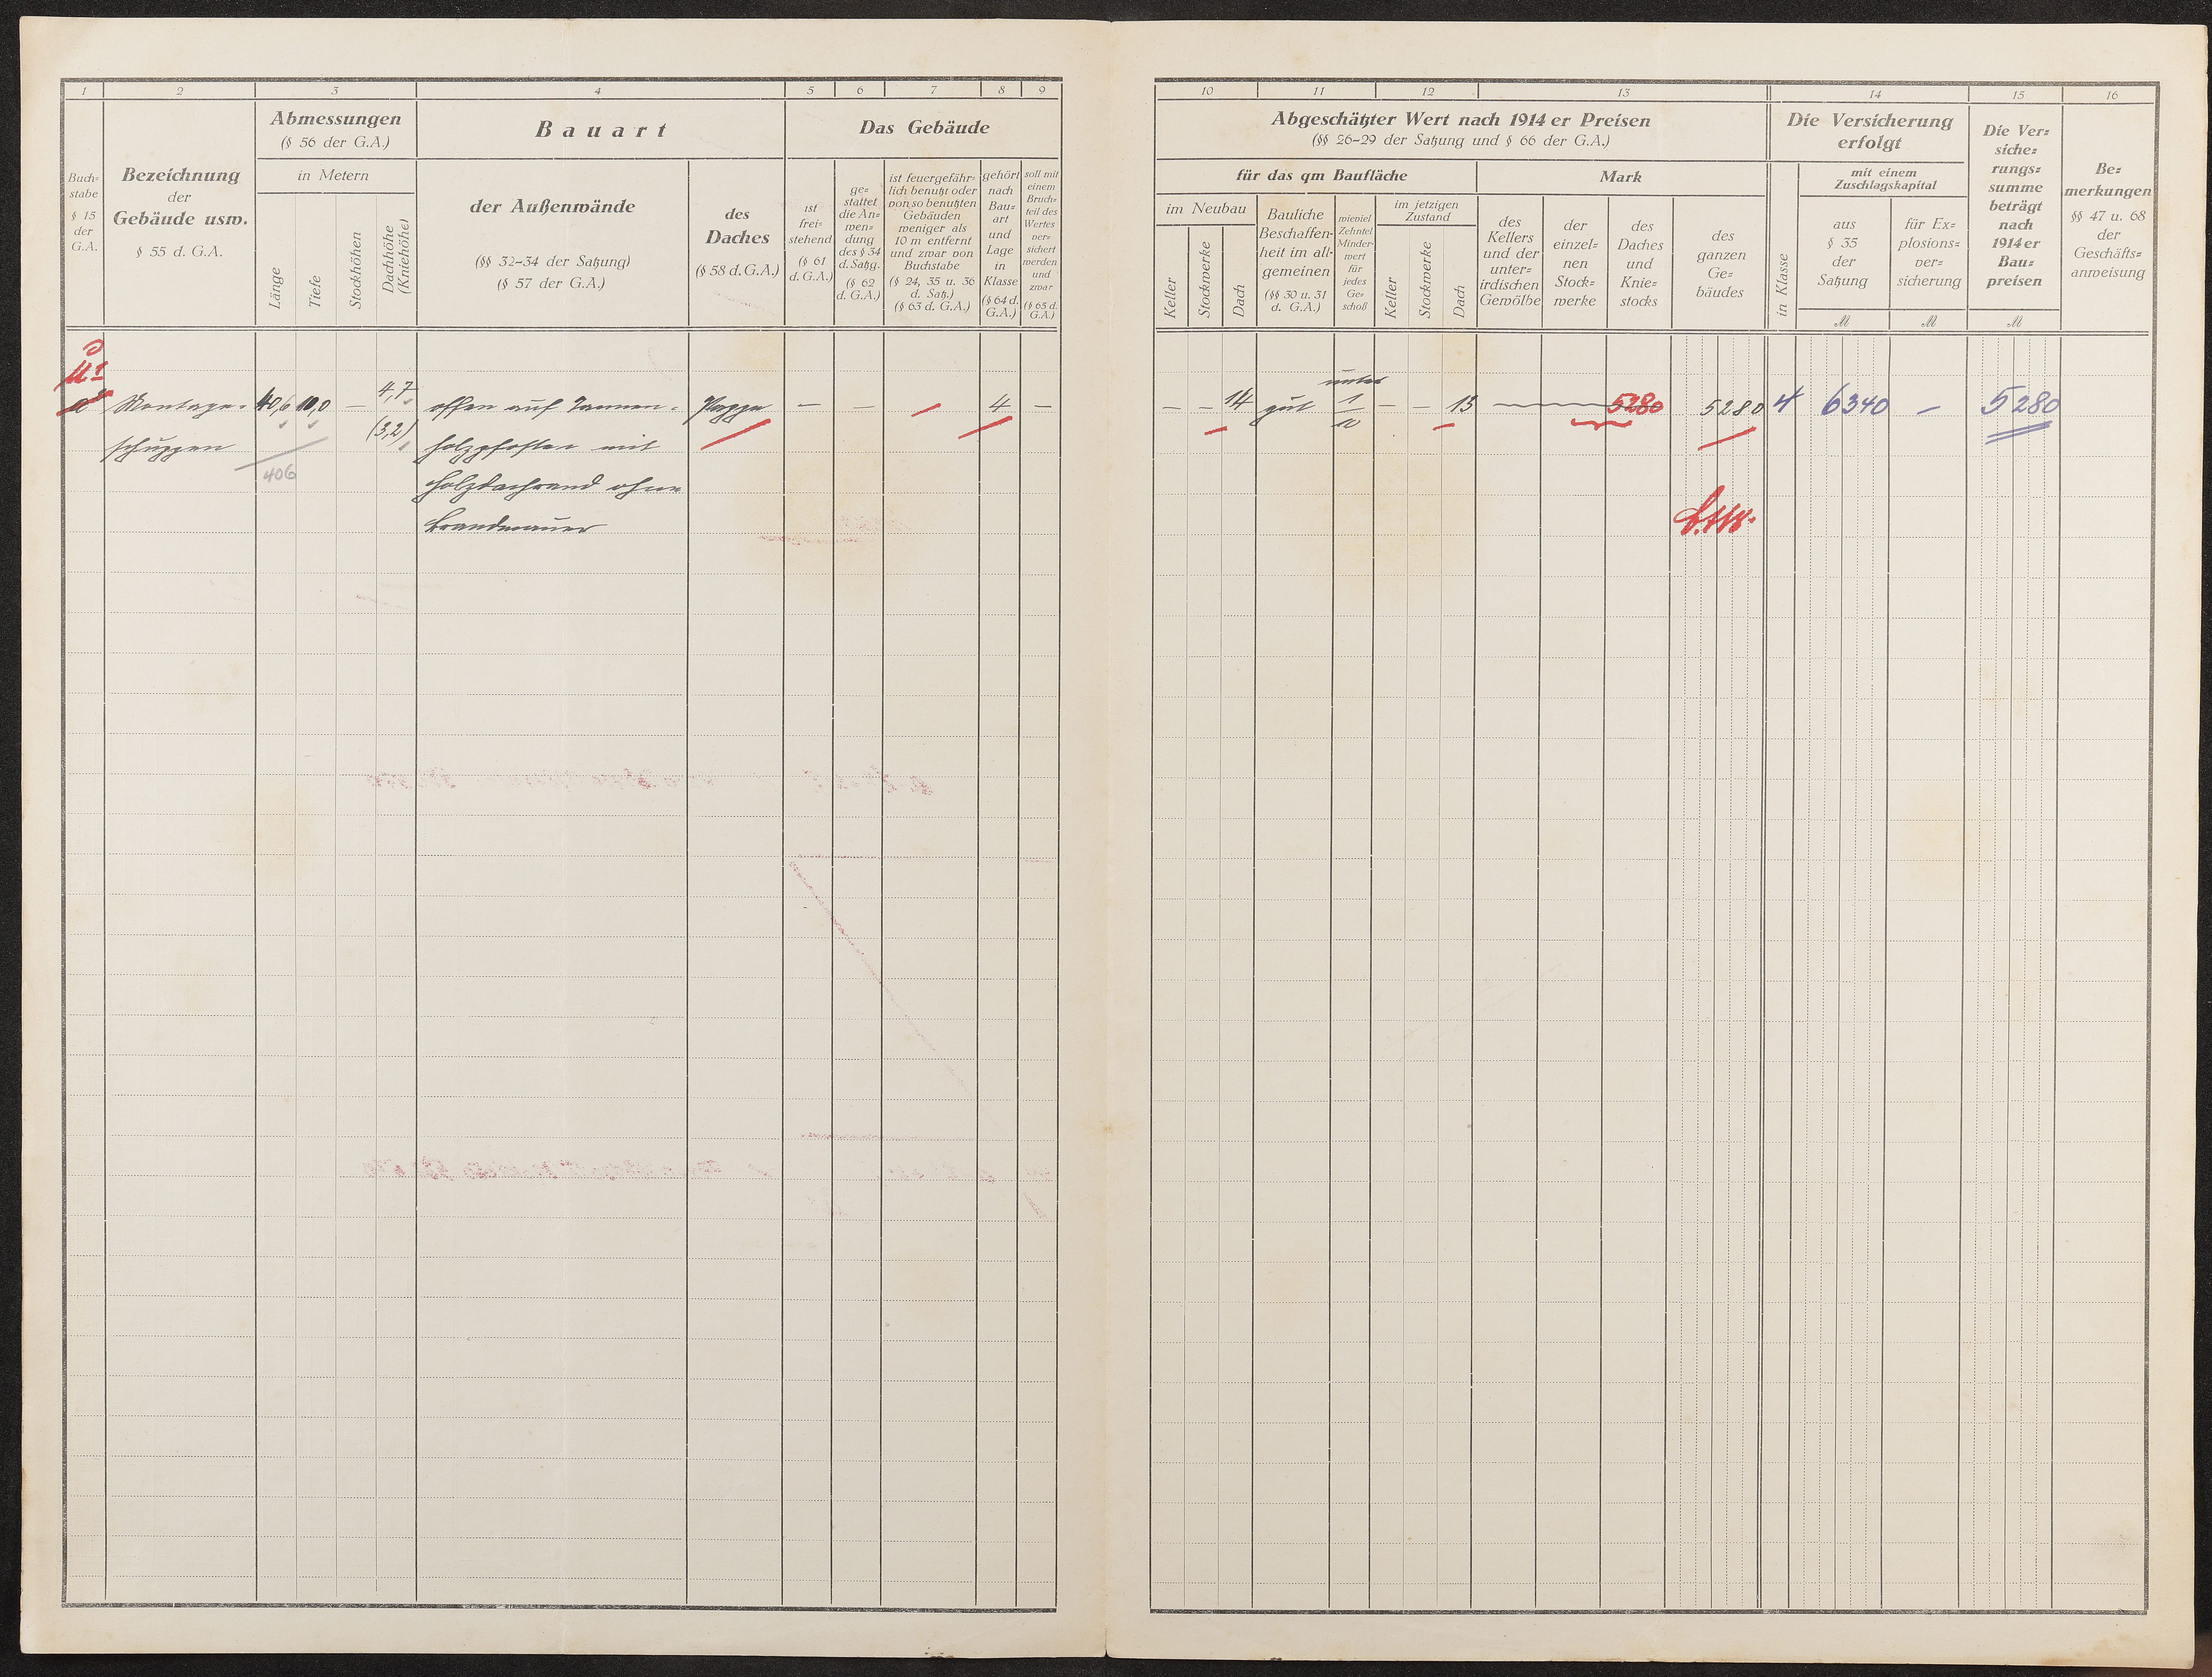 1 2 3 4 5 6 7 8 9
Buch=
stabe
§ 15
der
G.A.
Bezeichnung
der
Gebäude usw.
§ 55 d. G.A.
Abmessungen
(§ 56 der G.A.)
in Metern
Länge
Tiefe
Stockhöhen
Dachhöhe
(Kniehöhe)
Bauart
der Außenwände
(§§ 32-34 der Satzung)
(§ 57 der G.A.)
des
Daches
(§ 58 d. G.A.)
Das Gebäude
ist
frei=
stehend
(§ 61
d. G.A.)
ge=
stattet
die An=
wen=
dung
des § 34
d. Satzg.
(§ 62
d. G.A.)
ist feuergefähr=
lich benutzt oder
von so benutzten
Gebäuden
weniger als
10 m entfernt
und zwar von
Buchstabe
(§ 24, 35 u. 36
d. Satz.)
(§ 63 d. G.A.)
gehört
nach
Bau=
art
und
Lage
in
Klasse
(§ 64 d.
G.A.)
soll mit
einem
Bruch=
teil des
Wertes
ver=
sichert
werden
und
zwar
(§ 65 d.
G.A.)
a Montage- 40,6 10,0 — 4,7 offen auf Tannen- Pappe — — 4 —
schuppen (3,2) holzpfosten mit
406
Holzdachrand ohne
Brandmauer
10 11 12 13 14 15 16
Abgeschätzter Wert nach 1914 er Preisen
(§§ 26-29 der Satzung und § 66 der G.A.)
für das qm Baufläche
im Neubau
Keller
Stockwerke
Dach
Bauliche
Beschaffen=
heit im all=
gemeinen
(§§ 30 u. 31
d. G.A.)
wieviel
Zehntel
Minder=
wert
für
jedes
Ge=
schoß
im jetzigen
Zustand
Keller
Stockwerke
Dach
Mark
des
Kellers
und der
unter=
irdischen
Gewölbe
der
einzel=
nen
Stock=
werke
des
Daches
und
Knie=
stocks
des
ganzen
Ge=
bäudes
Die Versicherung
erfolgt
in Klasse
mit einem
Zuschlagskapital
aus
§ 35
der
Satzung
für Ex=
plosions=
ver=
sicherung
M M M
Die Ver=
siche=
rungs=
summe
beträgt
nach
1914 er
Bau=
preisen
Be=
merkungen
§§ 47 u. 68
der
Geschäfts=
anweisung
unter
— — 14 gut 1/10 — — 13 — 5280 5280 4 6340 — 5280